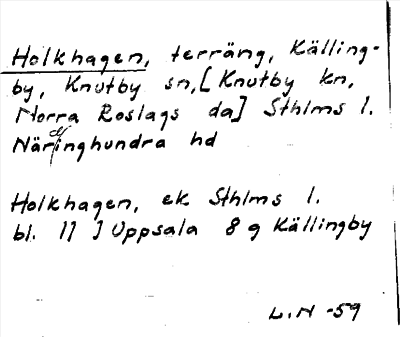 Holkhagen, terräng, Källing-
by, Knutby sn, [Knutby kn,
Norra Roslags da] Sthlms l.
Närdinghundra hd
Holkhagen, ek Sthlms l.
bl. 11 ] Uppsala 8 g Källingby
L.N -59